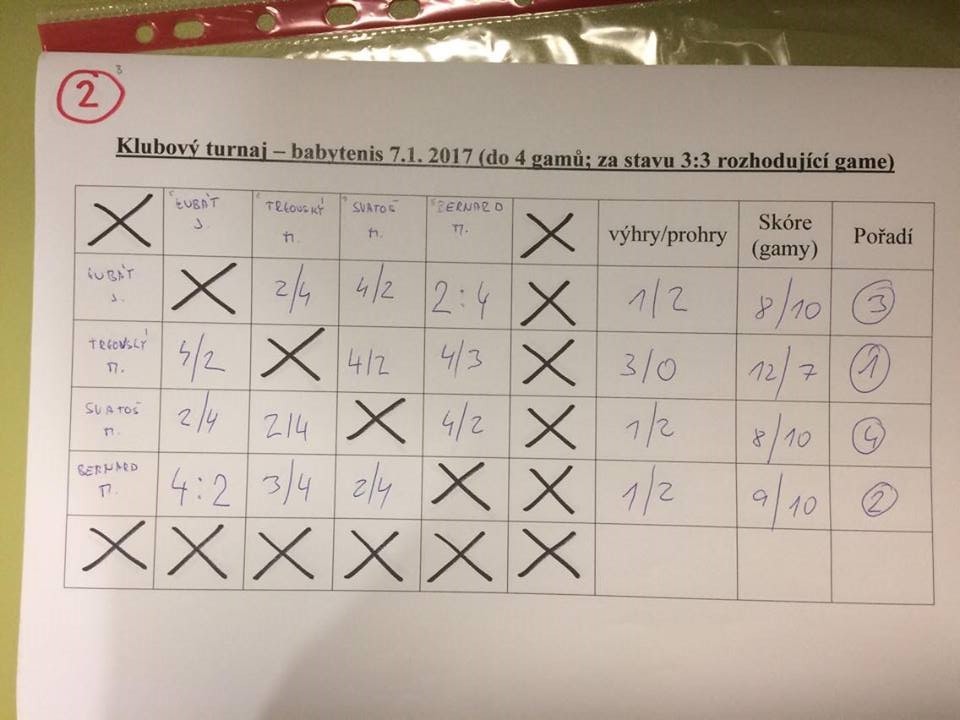 2
3
Klubový turnaj – babytenis 7.1. 2017 (do 4 gamů; za stavu 3:3 rozhodující game)
J. TRGOVSKÝ M. SVATOŠ M. BERNARD M. výhry/prohry Skóre (gamy) Pořadí
J. 2/4 4/2 2:4 1/2 8/10 3
TRGOVSKÝ M. 4/2 4/2 4/3 3/0 12/7 1
SVATOŠ M. 2/4 2/4 4/2 1/2 8/10 4
BERNARD M. 4:2 3/4 2/4 1/2 9/10 2